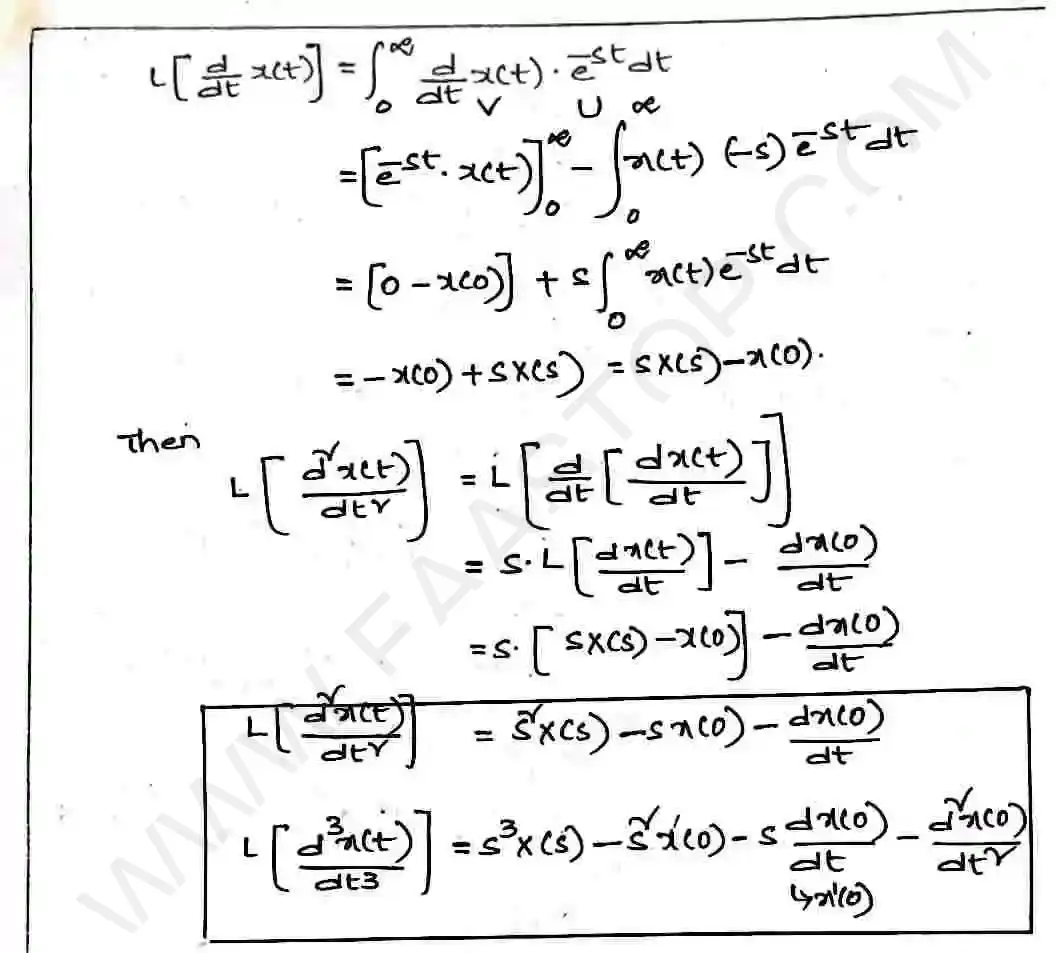 L[d/dt x(t)] = ∫₀^∞ d/dt x(t) · e^-st dt
V U
= [e^-st · x(t)]₀^∞ - ∫₀^∞ x(t) (-s) e^-st dt
= [0 - x(0)] + s ∫₀^∞ x(t) e^-st dt
= -x(0) + s X(s) = s X(s) - x(0).
Then
L[d²x(t)/dt²] = L[d/dt [dx(t)/dt]]
= s · L[dx(t)/dt] - dx(0)/dt
= s · [s X(s) - x(0)] - dx(0)/dt
L[d²x(t)/dt²] = s² X(s) - s x(0) - dx(0)/dt
L[d³x(t)/dt3] = s³ X(s) - s² x'(0) - s dx(0)/dt - d²x(0)/dt²
↳ x'(0)
WWW.FAASTOP.COM